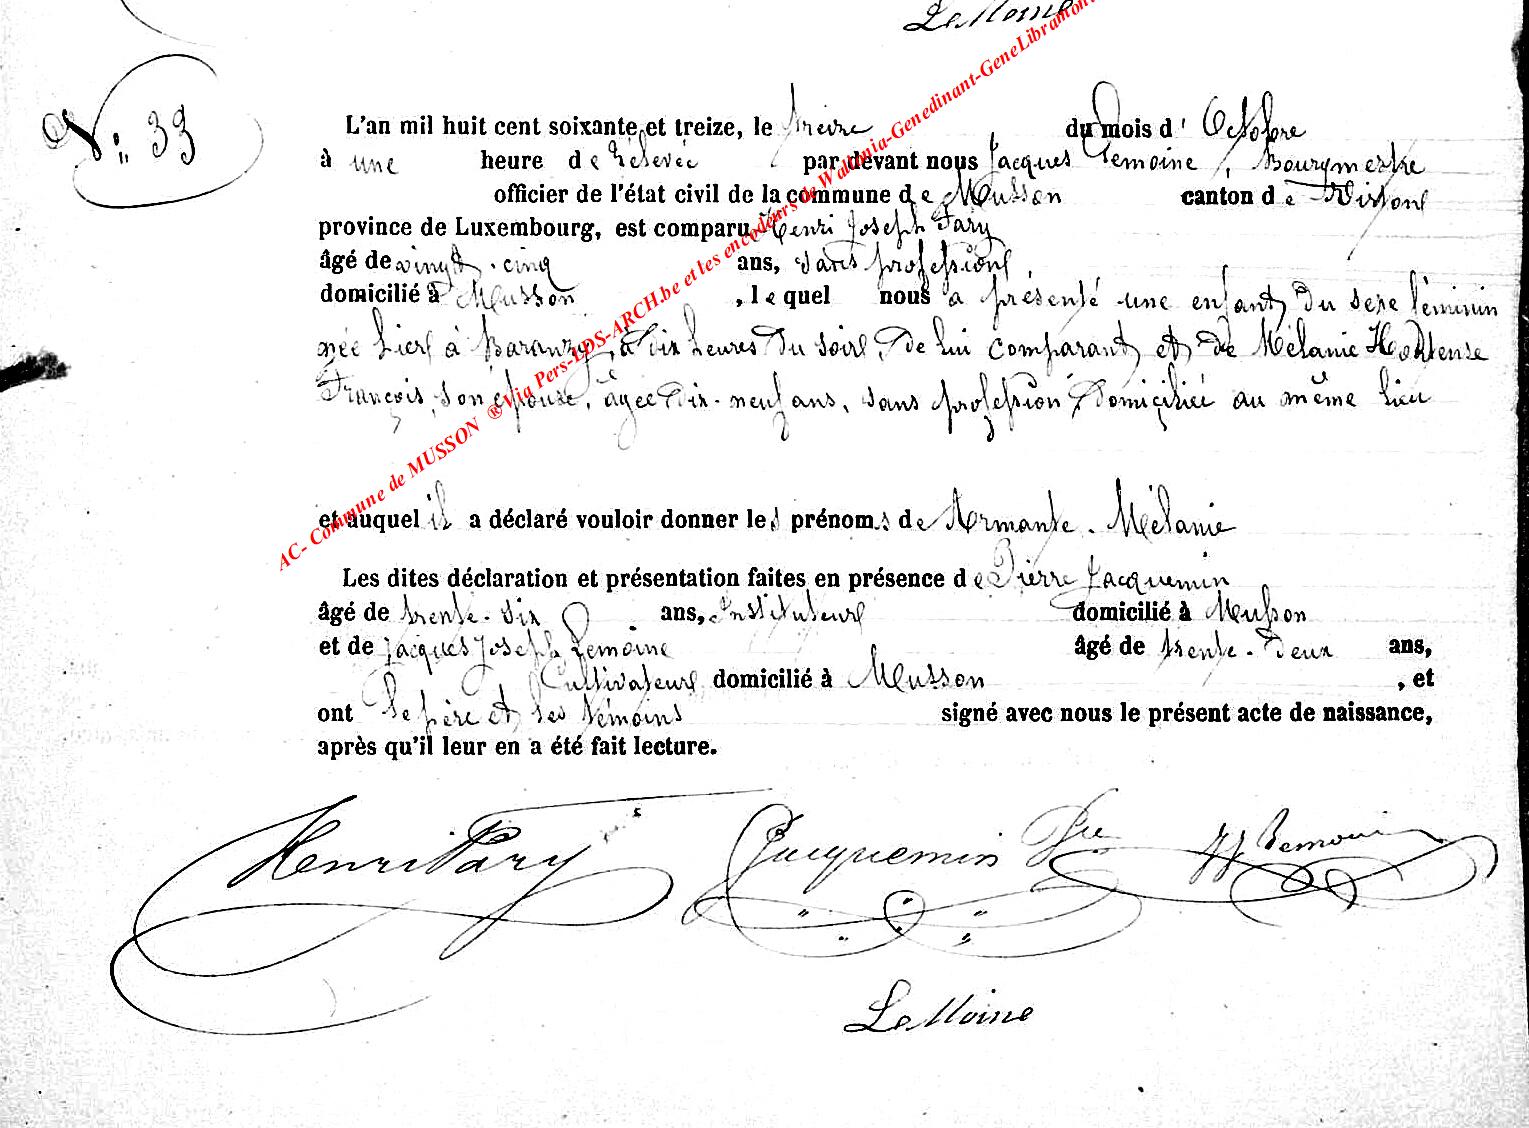 Lemoine
N° 33
L'an mil huit cent soixante et treize, le treize du mois d'Octobre
à une heure de rélevée par devant nous Jacques Lemoine, Bourgmestre
officier de l'état civil de la commune de Musson canton de Virton
province de Luxembourg, est comparu Henri Joseph Pary
âgé de vingt-cinq ans, sans profession,
domicilié à Musson, lequel nous a présenté une enfant du sexe féminin
née hier à Baranzy, à dix heures du soir, de lui comparant et de Mélanie Hortense
François, son épouse, âgée dix-neuf ans, sans profession, domiciliée au même lieu
et auquel il a déclaré vouloir donner les prénoms de Armante - Mélanie
Les dites déclaration et présentation faites en présence de Pierre Jacquemin
âgé de trente-six ans, Instituteur domicilié à Musson
et de Jacques Joseph Lemoine âgé de trente-deux ans,
Cultivateur domicilié à Musson, et
ont le père et les témoins signé avec nous le présent acte de naissance,
après qu'il leur en a été fait lecture.
Henri Pary Jacquemin Pre JJ Lemoine
LeMoine
AC- Commune de MUSSON ® Via Pers-LDS-ARCH.be et les encodeurs de Wallonia-Genedinant-GeneLibramont